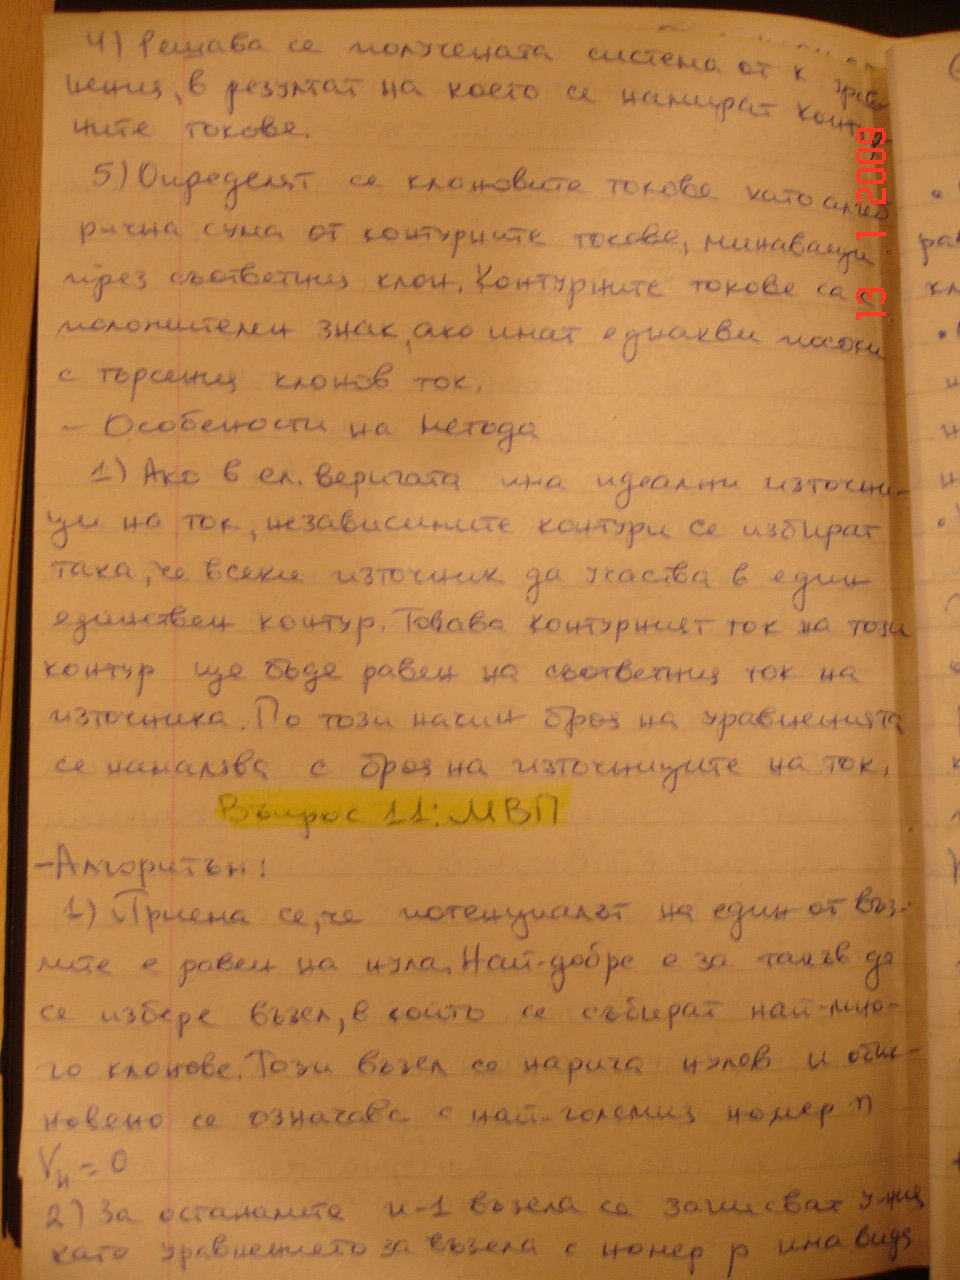 4) Решава се получената система от к урав-
нения, в резултат на което се намират контур-
ните токове.
5) Определят се клоновите токове като алгеб
рична сума от контурните токове, минаващи
през съответния клон. Контурните токове са с
положителен знак, ако имат еднакви посоки
с търсения клонов ток.
- Особености на метода
1) Ако в ел. веригата има идеални източни-
ци на ток, независимите контури се избират
така, че всеки източник да участва в един
единствен контур. Товава контурният ток на този
контур ще бъде равен на съответния ток на
източника. По този начин броя на уравненията
се намалява с броя на източниците на ток.
Въпрос 11: МВП
- Алгоритъм:
1) Приема се, че потенциалът на един от въз-
лите е равен на нула. Най-добре е за такъв да
се избере възел, в който се събират най-мно-
го клонове. Този възел се нарича нулев и обик-
новено се означава с най-големия номер n
Vn = 0
2) За останалите n-1 възела се записват у-ния
като уравнението за възела с номер p има вида
13 1 2009